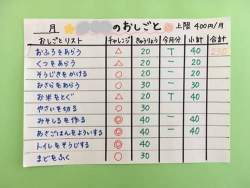 月 のおしごと 上限 400円/月
おしごとリスト チャレンジ きゅうりょう 今月分 小計 合計
おふろをあらう △ 20 T 40
くつをあらう △ 20 T 40
そうじきをかける ○ 20 T 40
おさらをあらう ○ 30
お米をとぐ △ 20 T 40
やさいを切る ○ 30
みそしるを作る ◎ 40 40
あさごはんをよういする ◎ 40 40
トイレをそうじする ◎ 40
まどをふく ○ 30